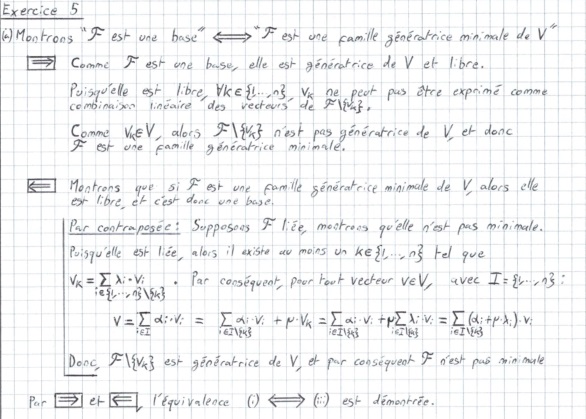 Exercice 5
(i) Montrons "F est une base" ⟺ "F est une famille génératrice minimale de V"
⟹ Comme F est une base, elle est génératrice de V et libre.
Puisqu'elle est libre, ∀k∈{1,...,n}, v_k ne peut pas être exprimé comme
combinaison linéaire des vecteurs de F\{v_k}.
Comme v_k∈V, alors F\{v_k} n'est pas génératrice de V, et donc
F est une famille génératrice minimale.
⟸ Montrons que si F est une famille génératrice minimale de V, alors elle
est libre, et c'est donc une base.
Par contraposée : Supposons F liée, montrons qu'elle n'est pas minimale.
Puisqu'elle est liée, alors il existe au moins un k∈{1,...,n} tel que
v_k = ∑_{i∈{1,...,n}\{k}} λ_i·v_i . Par conséquent, pour tout vecteur v∈V, avec I={1,...,n} :
v = ∑_{i∈I} α_i·v_i = ∑_{i∈I\{k}} α_i·v_i + μ·v_k = ∑_{i∈I\{k}} α_i·v_i + μ∑_{i∈I\{k}} λ_i·v_i = ∑_{i∈I\{k}} (α_i+μ·λ_i)·v_i
Donc, F\{v_k} est génératrice de V, et par conséquent F n'est pas minimale
Par ⟹ et ⟸, l'équivalence (i) ⟺ (ii) est démontrée.